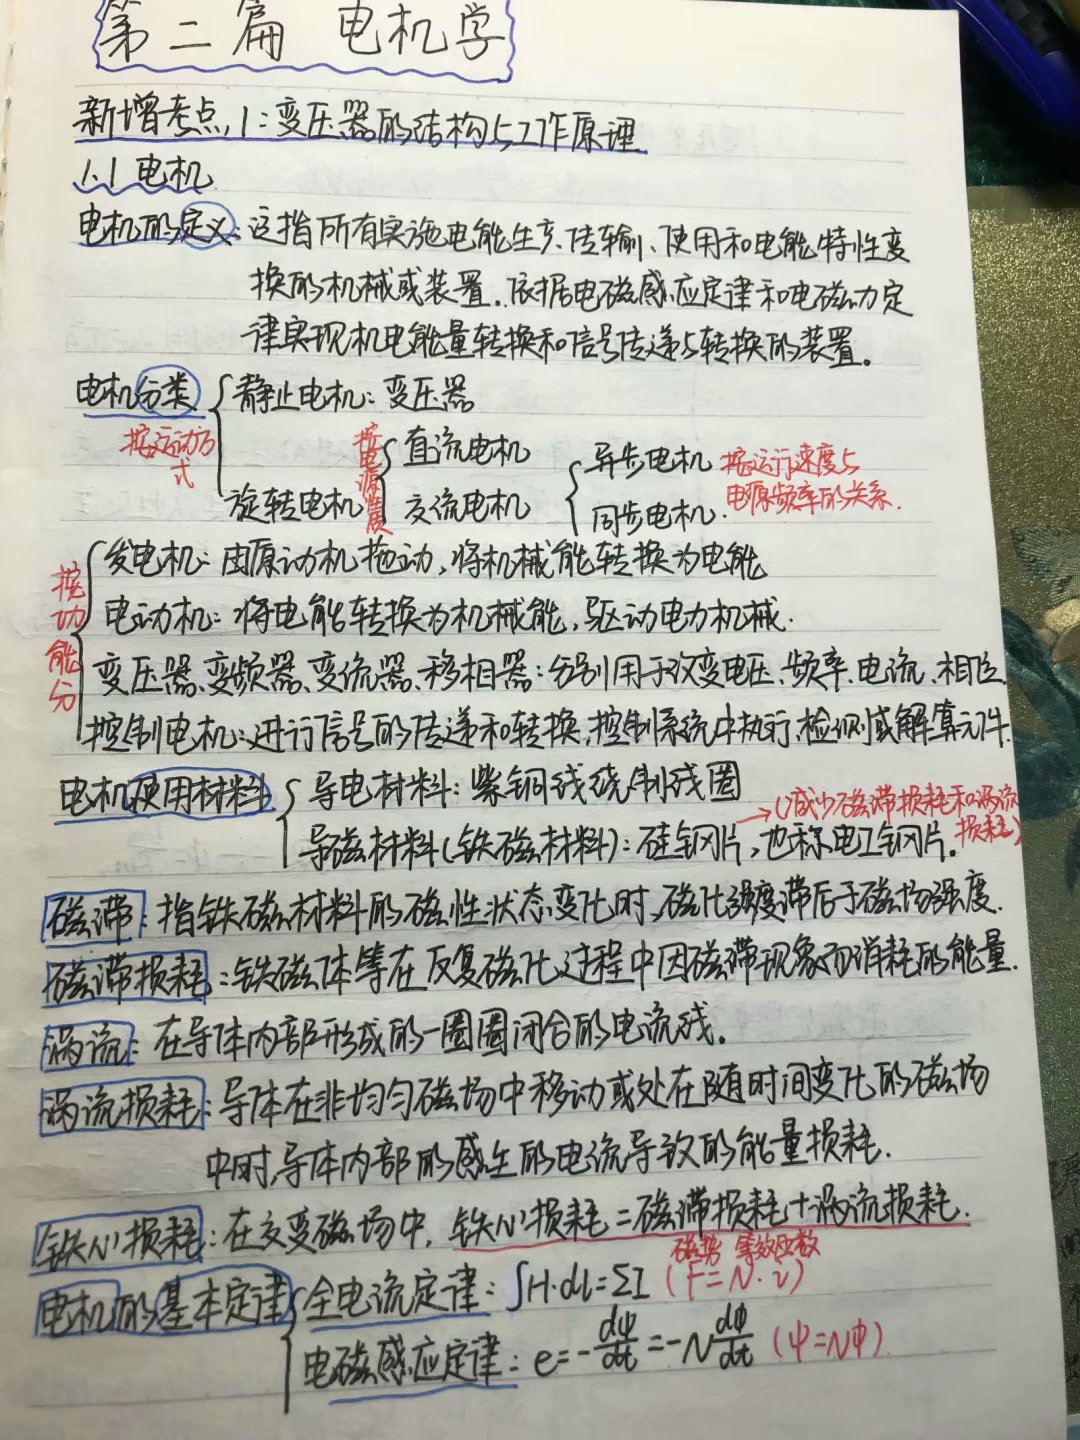 第二篇 电机学
新增考点1:变压器的结构与工作原理
1.1 电机
电机的定义:泛指所有实施电能生产、传输、使用和电能特性变
换的机械或装置。依据电磁感应定律和电磁力定
律实现机电能量转换和信号传递与转换的装置。
电机分类 静止电机:变压器
按运动方式
旋转电机
按电源性质
直流电机
交流电机
异步电机
同步电机.
按运行速度与
电源频率的关系.
按功能分
发电机:由原动机拖动,将机械能转换为电能
电动机:将电能转换为机械能,驱动电力机械.
变压器、变频器、变流器、移相器:分别用于改变电压、频率、电流、相位.
控制电机:进行信号的传递和转换,控制系统中执行、检测或解算元件.
电机使用材料 导电材料:紫铜线绕制线圈
导磁材料(铁磁材料):硅钢片,也称电工钢片.
→(减少磁滞损耗和涡流
损耗)
磁滞:指铁磁材料的磁性状态变化时,磁化强度滞后于磁场强度.
磁滞损耗:铁磁体等在反复磁化过程中因磁滞现象而消耗的能量.
涡流:在导体内部形成的一圈圈闭合的电流线.
涡流损耗:导体在非均匀磁场中移动或处在随时间变化的磁场
中时,导体内部的感生的电流导致的能量损耗.
铁心损耗:在交变磁场中,铁心损耗=磁滞损耗+涡流损耗.
磁势 等效匝数
电机的基本定律 全电流定律:∫H·dl=ΣI (F=N·i)
电磁感应定律:e=-dψ/dt=-N dΦ/dt (ψ=NΦ)